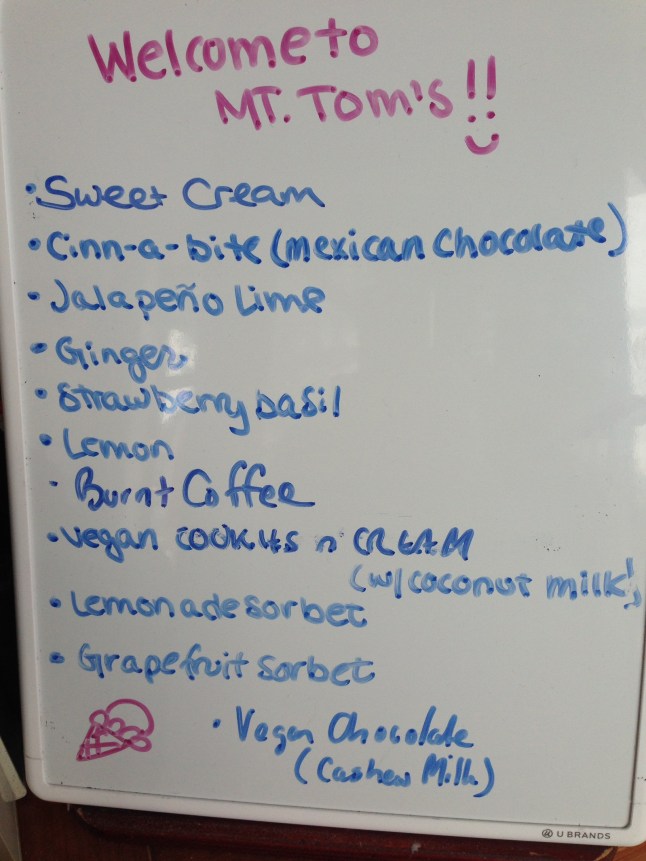 Welcome to
MT. Tom's!!
• Sweet Cream
• Cinn-a-bite (mexican chocolate)
• Jalapeño Lime
• Ginger
• Strawberry basil
• Lemon
• Burnt Coffee
• vegan COOKIES n CREAM
(w/coconut milk!)
• Lemonade sorbet
• Grapefruit sorbet
• Vegan Chocolate
(Cashew Milk)
U BRANDS